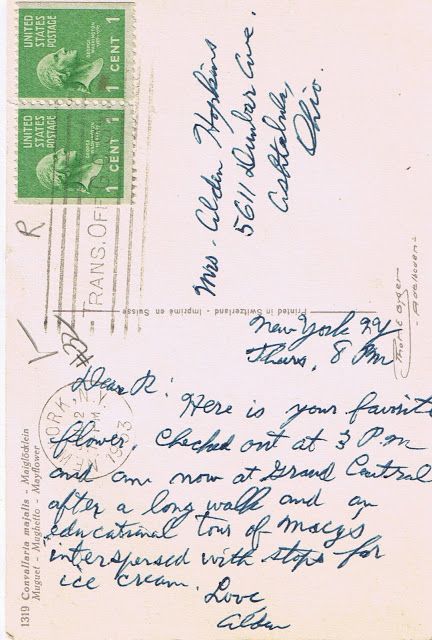 UNITED
STATES
POSTAGE
GEORGE
WASHINGTON
1 CENT 1
UNITED
STATES
POSTAGE
GEORGE
WASHINGTON
1 CENT 1
TRANS. OFF
Mrs. Alden Hopkins
5611 Dunbar Ave.
Ashtabula,
Ohio.
R
Printed in Switzerland - Imprimé en Suisse
NEW YORK, N.Y.
12
PM
1953
New York NY
Thurs, 8 PM
Dear R:
Here is your favorite
flower. Checked out at 3 P.M
and am now at Grand Central
after a long walk and an
educational tour of Macy's
interspersed with stops for
ice cream.
Love,
Alden
1319 Convallaria majalis - Maiglöcklein
Muguet - Mughetto - Mayflower